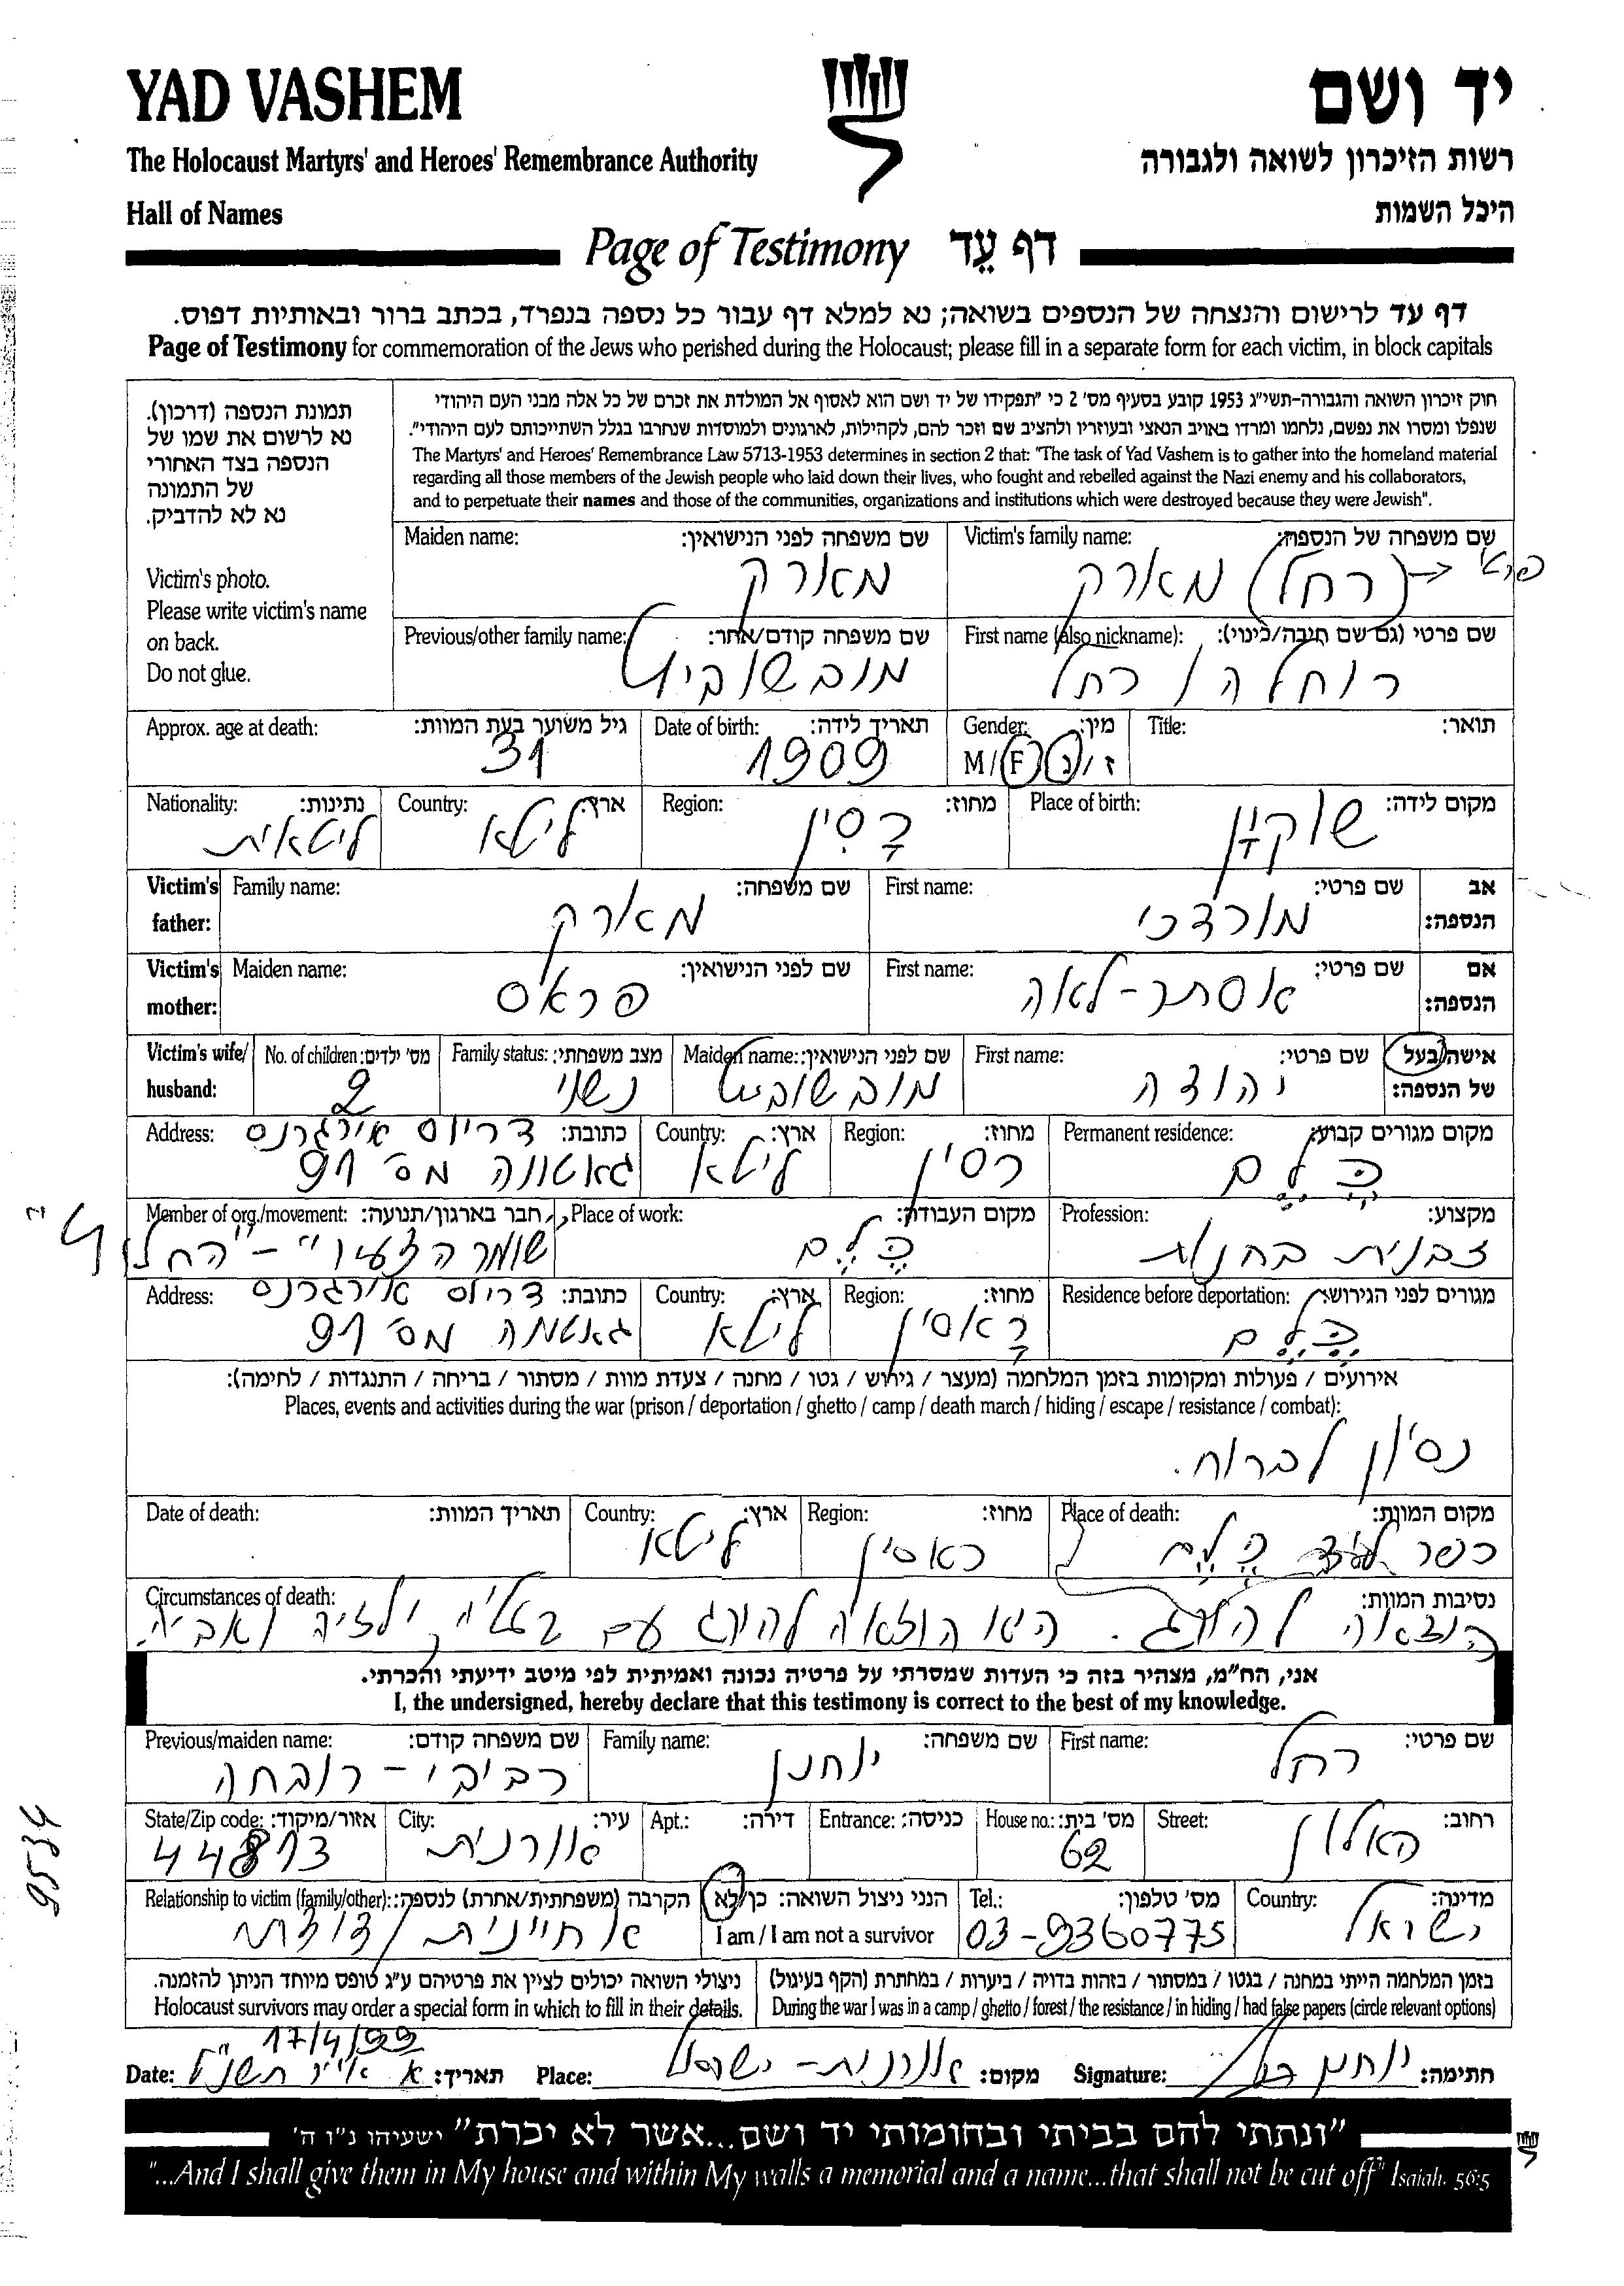 YAD VASHEM
יד ושם
The Holocaust Martyrs' and Heroes' Remembrance Authority
רשות הזיכרון לשואה ולגבורה
Hall of Names
היכל השמות
Page of Testimony דף עֵד
דף עד לרישום והנצחה של הנספים בשואה; נא למלא דף עבור כל נספה בנפרד, בכתב ברור ובאותיות דפוס.
Page of Testimony for commemoration of the Jews who perished during the Holocaust; please fill in a separate form for each victim, in block capitals
חוק זיכרון השואה והגבורה-תשי״ג 1953 קובע בסעיף מס' 2 כי ״תפקידו של יד ושם הוא לאסוף אל המולדת את זכרם של כל אלה מבני העם היהודי
שנפלו ומסרו את נפשם, נלחמו ומרדו באויב הנאצי ובעוזריו ולהציב שם וזכר להם, לקהילות, לארגונים ולמוסדות שנחרבו בגלל השתייכותם לעם היהודי״.
The Martyrs' and Heroes' Remembrance Law 5713-1953 determines in section 2 that: "The task of Yad Vashem is to gather into the homeland material
regarding all those members of the Jewish people who laid down their lives, who fought and rebelled against the Nazi enemy and his collaborators,
and to perpetuate their names and those of the communities, organizations and institutions which were destroyed because they were Jewish".
תמונת הנספה (דרכון).
נא לרשום את שמו של
הנספה בצד האחורי
של התמונה
נא לא להדביק.
Victim's photo.
Please write victim's name
on back.
Do not glue.
Victim's family name: שם משפחה של הנספה:
פרטי ← (רחל) מארק
Maiden name: שם משפחה לפני הנישואין:
מארק
First name (also nickname): שם פרטי (גם שם חיבה/כינוי):
רוחלה / רחל
Previous/other family name: שם משפחה קודם/אחר:
מובשוביץ
Title: תואר:
Gender: מין:
M/F ז/נ
Date of birth: תאריך לידה:
1909
Approx. age at death: גיל משוער בעת המוות:
31
Place of birth: מקום לידה:
שוקיין
Region: מחוז:
רסיין
Country: ארץ:
ליטא
Nationality: נתינות:
ליטאית
Victim's father: אב הנספה:
First name: שם פרטי:
מורדכי
Family name: שם משפחה:
מארק
Victim's mother: אם הנספה:
First name: שם פרטי:
אסתר-לאה
Maiden name: שם לפני הנישואין:
פראס
Victim's wife/husband: אישה/בעל של הנספה:
First name: שם פרטי:
יהודה
Maiden name: שם לפני הנישואין:
מובשוביץ
Family status: מצב משפחתי:
נשוי
No. of children: מס' ילדים:
2
Permanent residence: מקום מגורים קבוע:
קלם
Region: מחוז:
רסיין
Country: ארץ:
ליטא
Address: כתובת:
דריוס אירגרנס
גאטווה מס' 91
Profession: מקצוע:
זבנית בחנות
Place of work: מקום העבודה:
קלם
Member of org./movement: חבר בארגון/תנועה:
"שומר הצעיר" - "החלוץ"
Residence before deportation: מגורים לפני הגירוש:
קלם
Region: מחוז:
ראסיין
Country: ארץ:
ליטא
Address: כתובת:
דריוס אירגרנס
גאטווה מס' 91
אירועים / פעולות ומקומות בזמן המלחמה (מעצר / גירוש / גטו / מחנה / צעדת מוות / מסתור / בריחה / התנגדות / לחימה):
Places, events and activities during the war (prison / deportation / ghetto / camp / death march / hiding / escape / resistance / combat):
נסיון לברוח.
Place of death: מקום המוות:
כפר ליד קלם
Region: מחוז:
ראסיין
Country: ארץ:
ליטא
Date of death: תאריך המוות:
Circumstances of death: נסיבות המוות:
הוצאה להורג. היא הוצאה להורג עם בעליה, ילדיה ואביה.
אני, הח״מ, מצהיר בזה כי העדות שמסרתי על פרטיה נכונה ואמיתית לפי מיטב ידיעתי והכרתי.
I, the undersigned, hereby declare that this testimony is correct to the best of my knowledge.
First name: שם פרטי:
רחל
Family name: שם משפחה:
יוחנן
Previous/maiden name: שם משפחה קודם:
רביבי - רובחה
Street: רחוב:
האלון
House no.: מס' בית:
62
Entrance: כניסה:
Apt.: דירה:
City: עיר:
אורנית
State/Zip code: אזור/מיקוד:
44813
Country: מדינה:
ישראל
Tel.: מס' טלפון:
03-9360775
הנני ניצול השואה: כן/לא
I am / I am not a survivor
Relationship to victim (family/other): הקרבה (משפחתית/אחרת) לנספה:
אחיינית / דודה
בזמן המלחמה הייתי במחנה / בגטו / במסתור / בזהות בדויה / ביערות / במחתרת (הקף בעיגול)
During the war I was in a camp / ghetto / forest / the resistance / in hiding / had false papers (circle relevant options)
ניצולי השואה יכולים לציין את פרטיהם ע״ג טופס מיוחד הניתן להזמנה.
Holocaust survivors may order a special form in which to fill in their details.
Signature: חתימה: יוחנן רחל
Place: מקום: אורנית - ישראל
17/4/99
Date: תאריך: א אייר תשנ"ט
9534
״ונתתי להם בביתי ובחומותי יד ושם...אשר לא יכרת״ ישעיהו נ״ו ה'
"...And I shall give them in My house and within My walls a memorial and a name...that shall not be cut off" Isaiah. 56:5